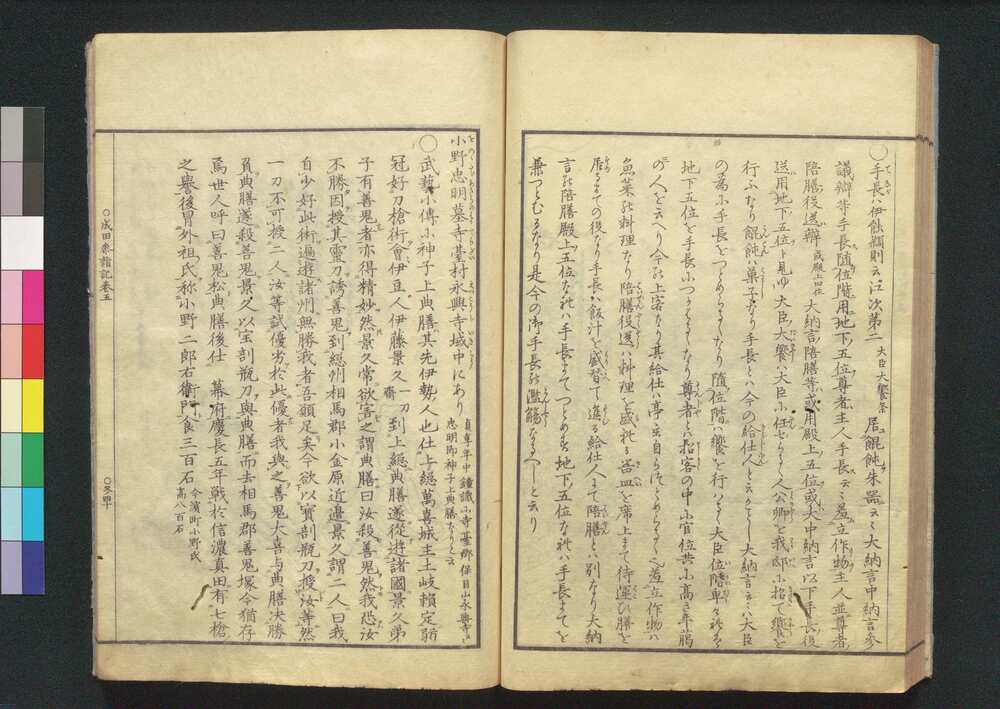 〇手長ハ伊勢瓶則云注次第二 大臣大饗条 居餛飩朱器云々大納言中納言参
議辨等手長随位階用地下五位尊者主人手長云々羞立作物主人並尊者
陪膳役送辨 或殿上四位 大納言陪膳等或用殿上五位或大中納言以下手長役
送用地下五位ト見ゆ大臣大饗ハ大臣に任せらるゝ人公卿を我邸に招て饗を
行ふなり餛飩ハ菓子なり手長とハ今の給仕人と云がごとし大納言云々ハ大臣
の為に手長をつとめらるゝなり随位階ハ饗を行ハるゝ大臣位階卑けれハ
地下五位を手長につかハるゝなり尊者とハ招客の中に官位共に高き年﨟
の人を云へり今の上客なり其給仕ハ亭主自らつとめらるゝ也羞立作物ハ
魚菜の料理なり陪膳役送ハ料理を盛れる器皿を席上まて侍運ひ膳を
居るまての役なり手長ハ飯汁を盛替て進る給仕人にて陪膳とハ別なり大納
言の陪膳殿上五位なれハ手長まてつとめ地下五位なれハ手長まてを
兼つとむるなり是今の御手長の濫觴なるへしと云り
小野忠明墓寺臺村永興寺域中にあり 貞享年中鐘識に寺臺郷保目山永興寺と 忠明御神子上典膳なりと云
〇武藝小傳小神子上典膳其先伊勢人也仕上總萬喜城主土岐賴定弱
冠好刀槍術會伊豆人伊藤景久 一刀齋 到上總典膳遂從遊諸國景久弟
子有善鬼者亦得精妙然景久常欲害之謂典膳曰汝殺善鬼然我恐汝
不勝因授其靈刀誘善鬼到總州相馬郡小金原近邊景久謂二人曰我
自少好此術遍遊諸州無勝我者吾願足矣今欲以寶剖瓶刀授汝等然
一刀不可授二人汝等試優劣於此優者我與之善鬼大喜与典膳決勝
負典膳遂殺善鬼景久以宝剖瓶刀與典膳而去相馬郡善鬼塚今猶存
焉世人呼曰善鬼松典膳後仕 幕府慶長五年戰於信濃真田有七槍
之譽後冒外祖氏称小野二郎右衛門食三百石 今濱町小野氏 高八百石
〇成田参詣記巻五
〇冬四十